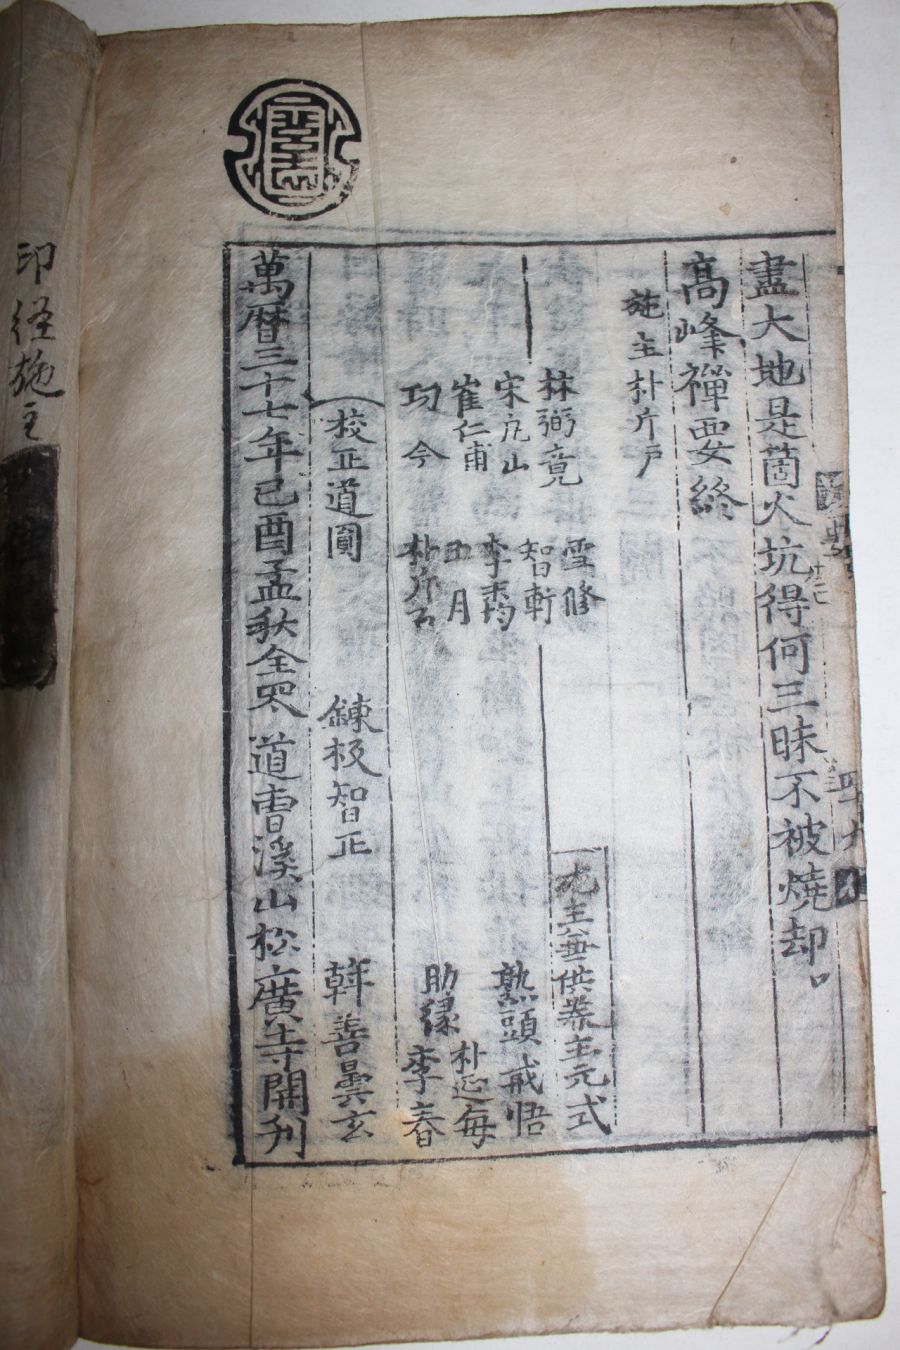 盡大地是箇火坑得何三昧不被燒却
高峰禪要終
施主朴斤尸
林弼竟 雪修
宋
智軒
山 李
崔仁甫 月
功今 朴
化主兼供養主元式
熟頭戒悟
朴延每
助緣 李春
校正道圓 鍊板智正 善曇玄
萬曆三十七年己酉孟秋全羅道曹溪山松廣寺開刋
印経施主